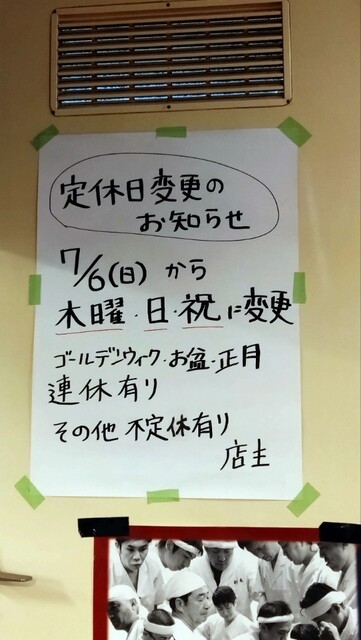 定休日変更の
お知らせ
7/6(日) から
木曜・日・祝に変更
ゴールデンウィク・お盆・正月
連休有り
その他 不定休有り
店主